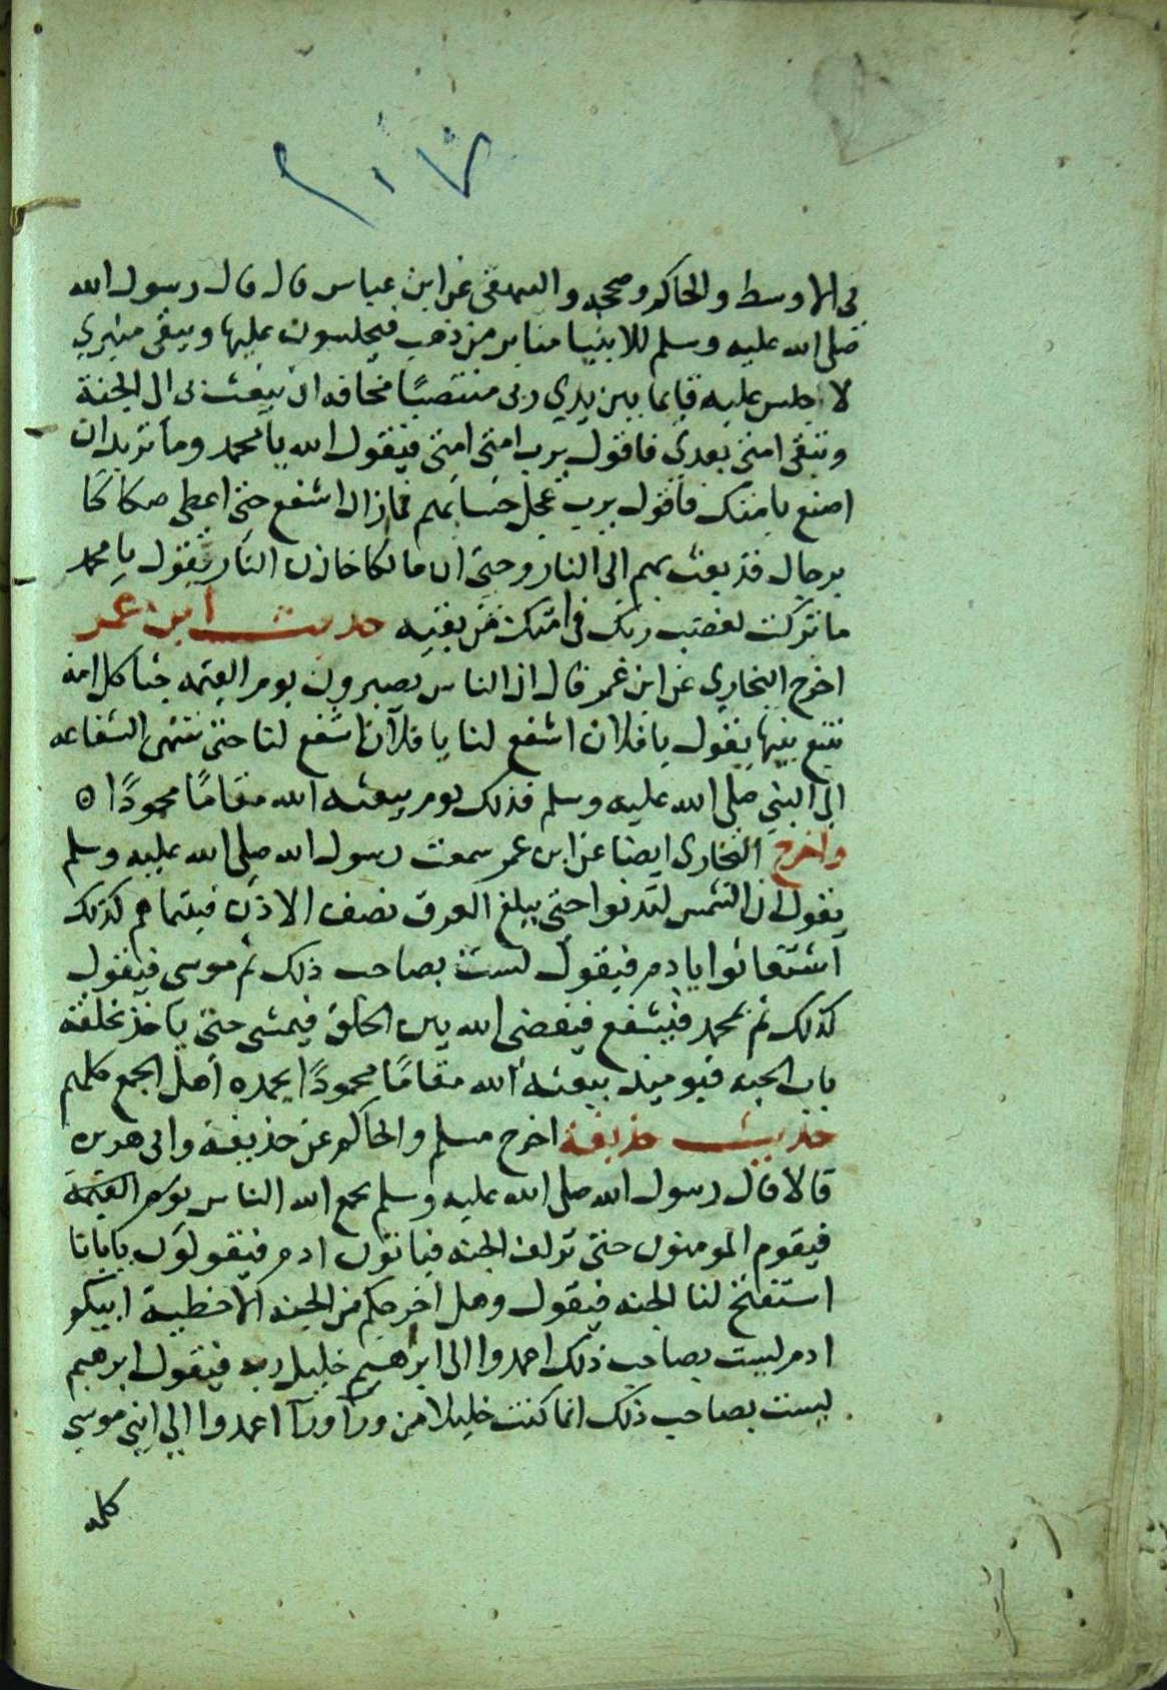 ٢١٧
في الاوسط والحاكم وصححه والبيهقي عن ابن عباس قال قال رسول الله
صلى الله عليه وسلم للانبيا منابر من ذهب فيجلسون عليها ويبقى منبري
لا اجلس عليه قايما بين يدي ربي منتصبًا مخافة ان يبعث بي الى الجنة
وتبقى امتي بعدي فاقول يرب امتي امتي فيقول الله يا محمد وما تريد ان
اصنع بامتك فاقول يرب عجل حسابهم فما زال اشفع حتى اعطى صكاكًا
برجال قد بعث بهم الى النار وحتى ان مالكا خازن النار يقول يا محمد
ما تركت لغضب ربك في امتك من بقيه حديث ابن عمر
اخرج البخاري عن ابن عمر قال ان الناس يصيرون يوم القيمه جثا كل امة
تتبع نبيها يقول يا فلان اشفع لنا يا فلان اشفع لنا حتى تنتهى الشفاعه
الى النبي صلى الله عليه وسلم فذلك يوم يبعثه الله مقامًا محمودًا ه
واخرج البخارى ايضا عن ابن عمر سمعت رسول الله صلى الله عليه وسلم
يقول ان الشمس لتدنوا حتى يبلغ العرق نصف الاذن فبينما هم كذلك
استغاثوا بادم فيقول لست بصاحب ذلك ثم موسى فيقول
كذلك ثم بمحمد فيشفع فيقضي الله بين الخلق فيمشى حتى ياخذ بحلقة
باب الجنه فيوميذ يبعثه الله مقامًا محمودًا يحمده اهل الجمع كلهم
حديث حذيفة اخرج مسلم والحاكم عن حذيفة وابى هريرة
قالا قال رسول الله صلى الله عليه وسلم يجمع الله الناس يوم القيمة
فيقوم المومنون حتى تزلف الجنه فياتون ادم فيقولون يابانا
استفتح لنا الجنه فيقول وهل اخرجكم من الجنه الا خطية ابيكم
ادم لست بصاحب ذلك اعمدوا الى ابراهيم خليل ربه فيقول ابرهيم
لست بصاحب ذلك انما كنت خليلا من ورآ ورآ اعمدوا الي ابني موسي
كلمه